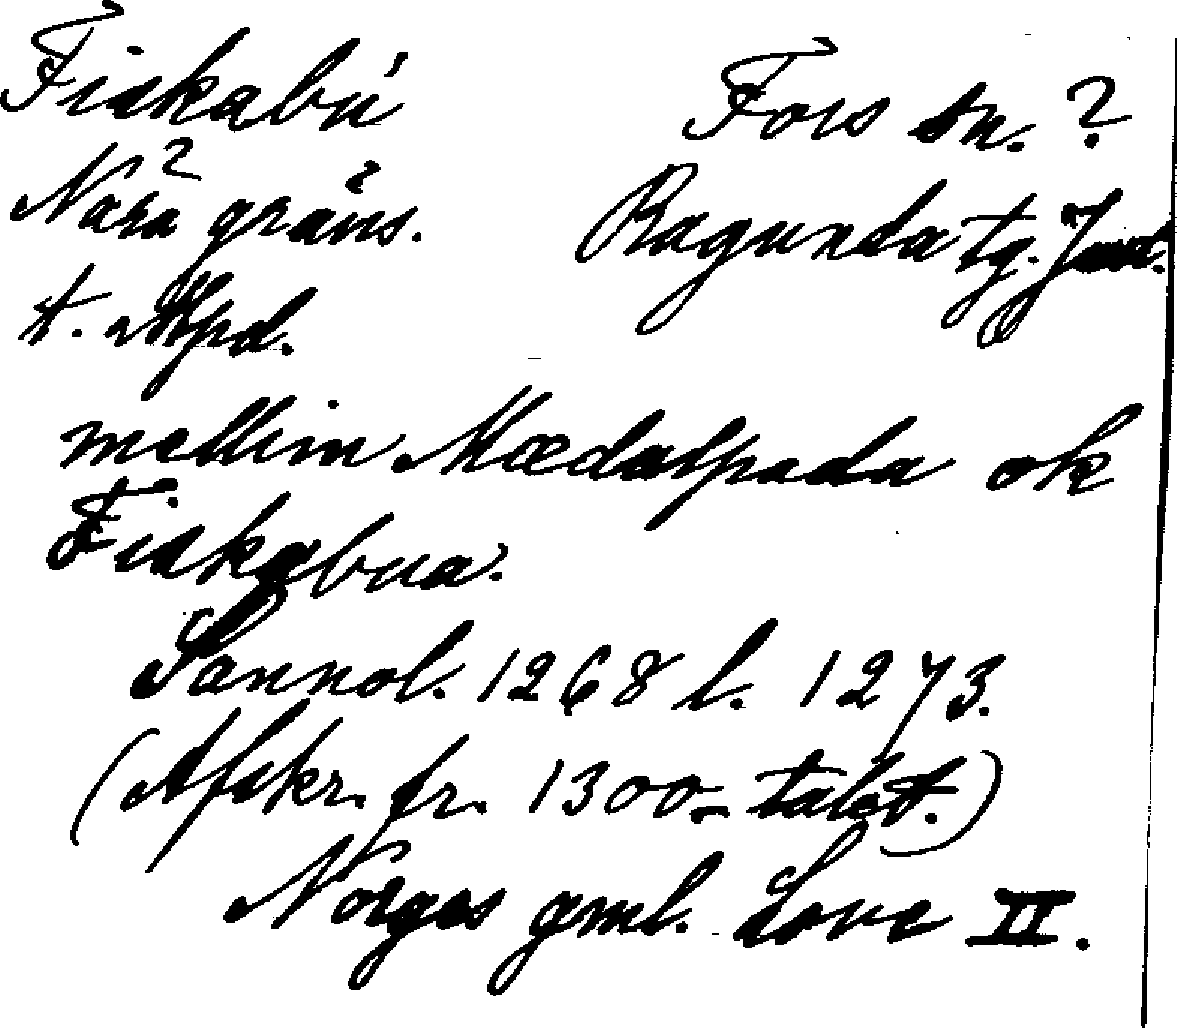 Fiskabú Fors sn. ?
Nära gräns. Ragunda tg. Jmt.
t. Mpd.
mellim Mædalpada ok
Fiskabua.
Sannol. 1268 l. 1273.
(Afskr. fr. 1300-talet.)
Norges gml. Love II.